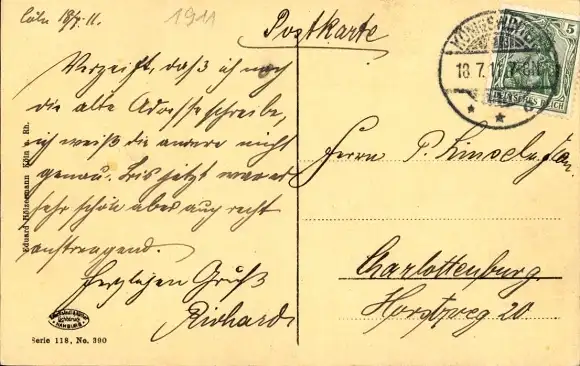 Cöln 18/7.11.
1911
Postkarte
Verzeiht, daß ich noch
die alte Adresse schreibe,
ich weiß die andere nicht
genau. Bis jetzt war es
sehr schön aber auch recht
anstrengend.
Herzlichen Gruß
Richard
Eduard Kölzemann Köln a. Rh.
Serie 118, No. 390
HAMBURG
KÖNIGSWINTER
18.7.11
5
DEUTSCHES REICH
Herrn P.
Charlottenburg
Horstweg 20